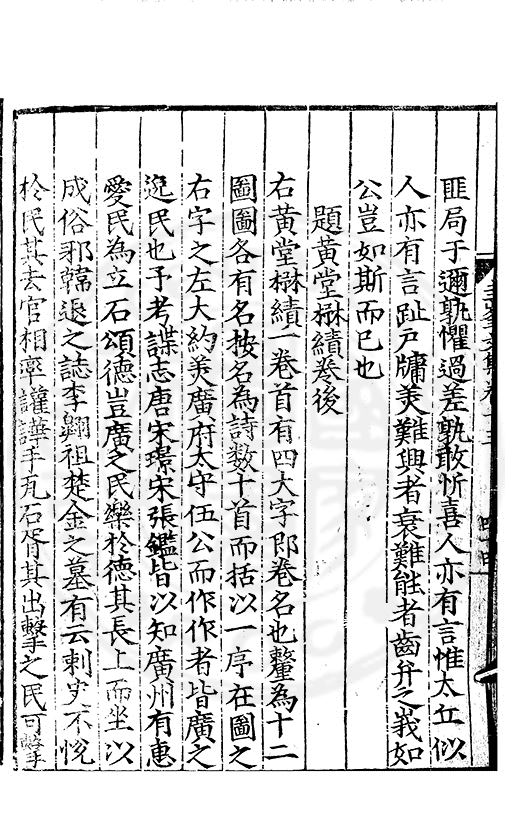 匪局于邇孰懼過差孰敢忻喜人亦有言惟太丘似
人亦有言趾戶牖美難興者衰難能者齒弁之峩如
公豈如斯而已也
題黃堂楙績卷後
右黃堂楙績一卷首有四大字即卷名也釐為十二
圖圖各有名按名為詩数十首而括以一序在圖之
右字之左大約美廣府太守伍公而作作者皆廣之
逸民也予考諜志唐宋璟宋張鑑皆以知廣州有惠
愛民為立石頌德豈廣之民樂於德其長上而坐以
成俗邪韓退之誌李翱祖楚金之墓有云刺史不悅
於民其去官相率讙譁手瓦石胥其出擊之民可擊